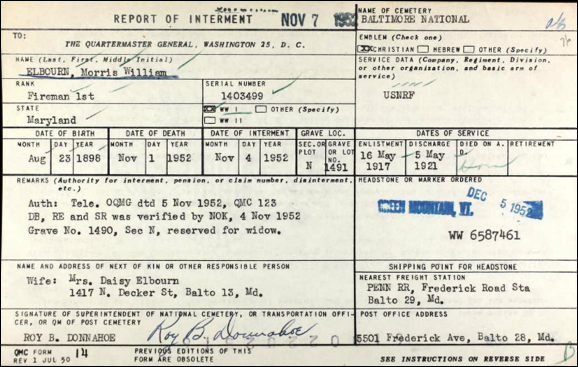 REPORT OF INTERMENT
NOV 7 1952
NAME OF CEMETERY
BALTIMORE NATIONAL
TO:
THE QUARTERMASTER GENERAL, WASHINGTON 25, D. C.
EMBLEM (Check one)
XX CHRISTIAN HEBREW OTHER (Specify)
NAME (Last, First, Middle Initial)
ELBOURN, Morris William
SERVICE DATA (Company, Regiment, Division,
or other organization, and basic arm of
service)
USNRF
RANK
Fireman 1st
SERIAL NUMBER
1403499
STATE
Maryland
XX WW I OTHER (Specify)
WW II
DATE OF BIRTH
DATE OF DEATH
DATE OF INTERMENT
GRAVE LOC.
DATES OF SERVICE
MONTH DAY YEAR
MONTH DAY YEAR
MONTH DAY YEAR
SEC. OR PLOT
GRAVE OR LOT NO.
ENLISTMENT DISCHARGE DIED ON A. D. RETIREMENT
Aug 23 1898
Nov 1 1952
Nov 4 1952
N
1491
16 May 1917
5 May 1921
REMARKS (Authority for interment, pension, or claim number, disinterment,
etc.)
Auth: Tele. OQMG dtd 5 Nov 1952, QMC 123
DB, RE and SR was verified by NOK, 4 Nov 1952
Grave No. 1490, Sec N, reserved for widow.
HEADSTONE OR MARKER ORDERED
DEC 5 1952
GREEN MOUNTAIN, VT.
WW 6587461
NAME AND ADDRESS OF NEXT OF KIN OR OTHER RESPONSIBLE PERSON
Wife: Mrs. Daisy Elbourn
1417 N. Decker St, Balto 13, Md.
SHIPPING POINT FOR HEADSTONE
NEAREST FREIGHT STATION
PENN RR, Frederick Road Sta
Balto 29, Md.
SIGNATURE OF SUPERINTENDENT OF NATIONAL CEMETERY, OR TRANSPORTATION OFFI-
CER, OR QM OF POST CEMETERY
ROY B. DONNAHOE
Roy B. Donnahoe
POST OFFICE ADDRESS
5501 Frederick Ave, Balto 28, Md.
QMC FORM 14
REV 1 JUL 50
PREVIOUS EDITIONS OF THIS
FORM ARE OBSOLETE
SEE INSTRUCTIONS ON REVERSE SIDE